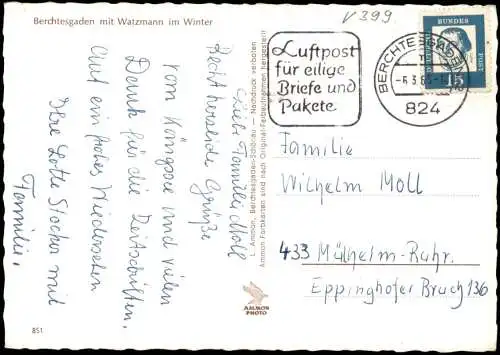 Berchtesgaden mit Watzmann im Winter
V 399
Liebe Familie Moll
Recht herzliche Grüße
vom Königsee und vielen
Dank für die Zeitschriften.
Auf ein frohes Wiedersehen
Ihre Lotte Stocker mit
Familie.
L. Ammon, Berchtesgaden-Schönau — Nachdruck verboten
Ammon Farbkarten sind nach Original-Farbaufnahmen hergestellt
AMMON
PHOTO
851
Luftpost
für eilige
Briefe und
Pakete
BERCHTESGADEN
824
DEUTSCHE BUNDESPOST
15
Familie
Wilhelm Moll
433 Mülheim-Ruhr.
Eppinghofer Bruch 136